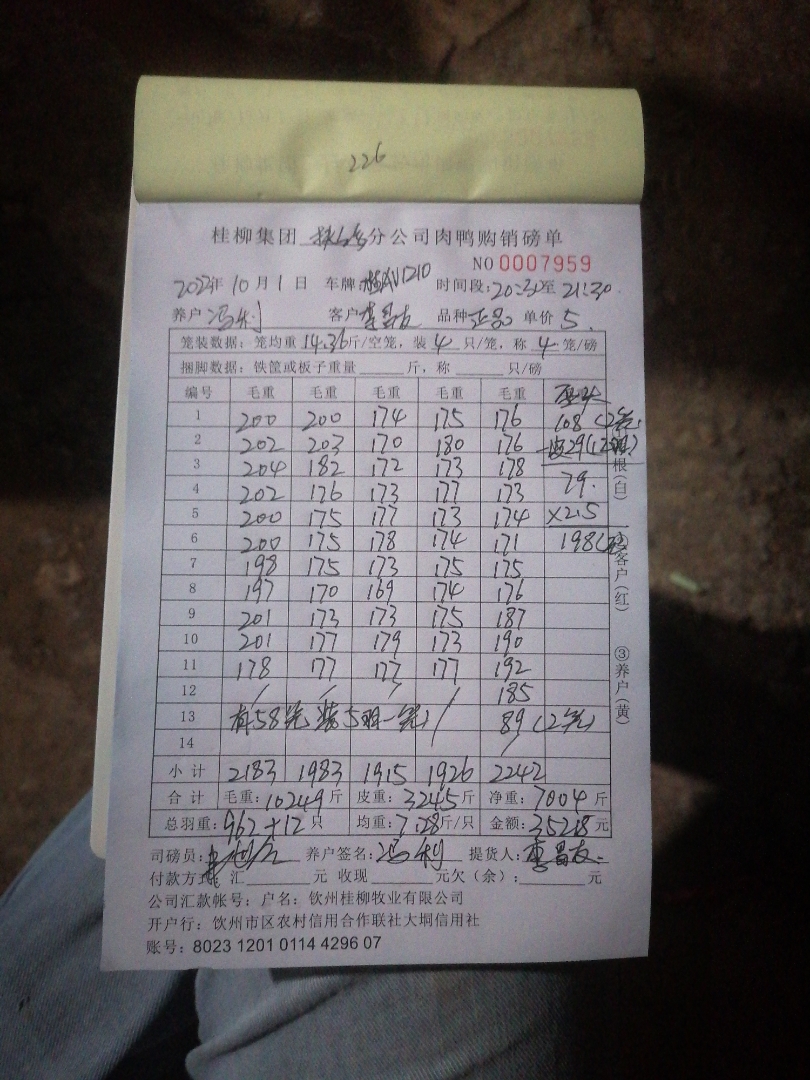 226
桂柳集团 分公司肉鸭购销磅单
NO 0007959
2022年10月1日 车牌 1210 时间段:20:30至21:30.
养户 冯利 客户 李昌友 品种 正品 单价 5.
笼装数据:笼均重14.36斤/空笼,装4只/笼,称4笼/磅
捆脚数据:铁筐或板子重量 斤,称 只/磅
编号 毛重 毛重 毛重 毛重 毛重
1 200 200 174 175 176 108(2笼)
2 202 203 170 180 176 29(
3 204 182 172 173 178
4 202 176 173 177 173 79.
5 200 175 177 173 174 ×2.5
6 200 175 178 174 171 198(
7 198 175 173 175 175
8 197 170 169 174 176
9 201 173 173 175 187
10 201 177 179 173 190
11 178 177 177 177 192
12 / / / / 185
13 有58笼(装5羽一笼) / 89(2笼)
14 /
小计 2183 1983 1915 1926 2242
合计 毛重:10249斤 皮重:3245斤 净重:7004斤
总羽重:962+12只 均重:7.28斤/只 金额:35218元
司磅员: 养户签名:冯利 提货人:李昌友
付款方式 汇 元 收现 元欠(余): 元
公司汇款帐号:户名:钦州桂柳牧业有限公司
开户行:钦州市区农村信用合作联社大垌信用社
账号:8023 1201 0114 4296 07
根(白)
②客户(红)
③养户(黄)